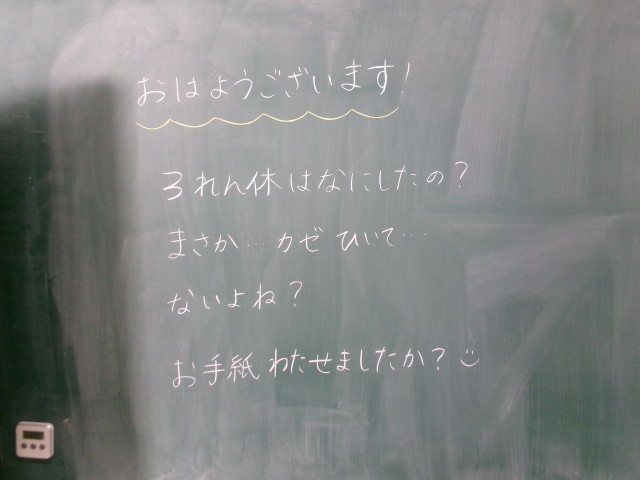 おはようございます!
3れん休はなにしたの?
まさか…カゼひいて‥‥
ないよね?
お手紙わたせましたか?